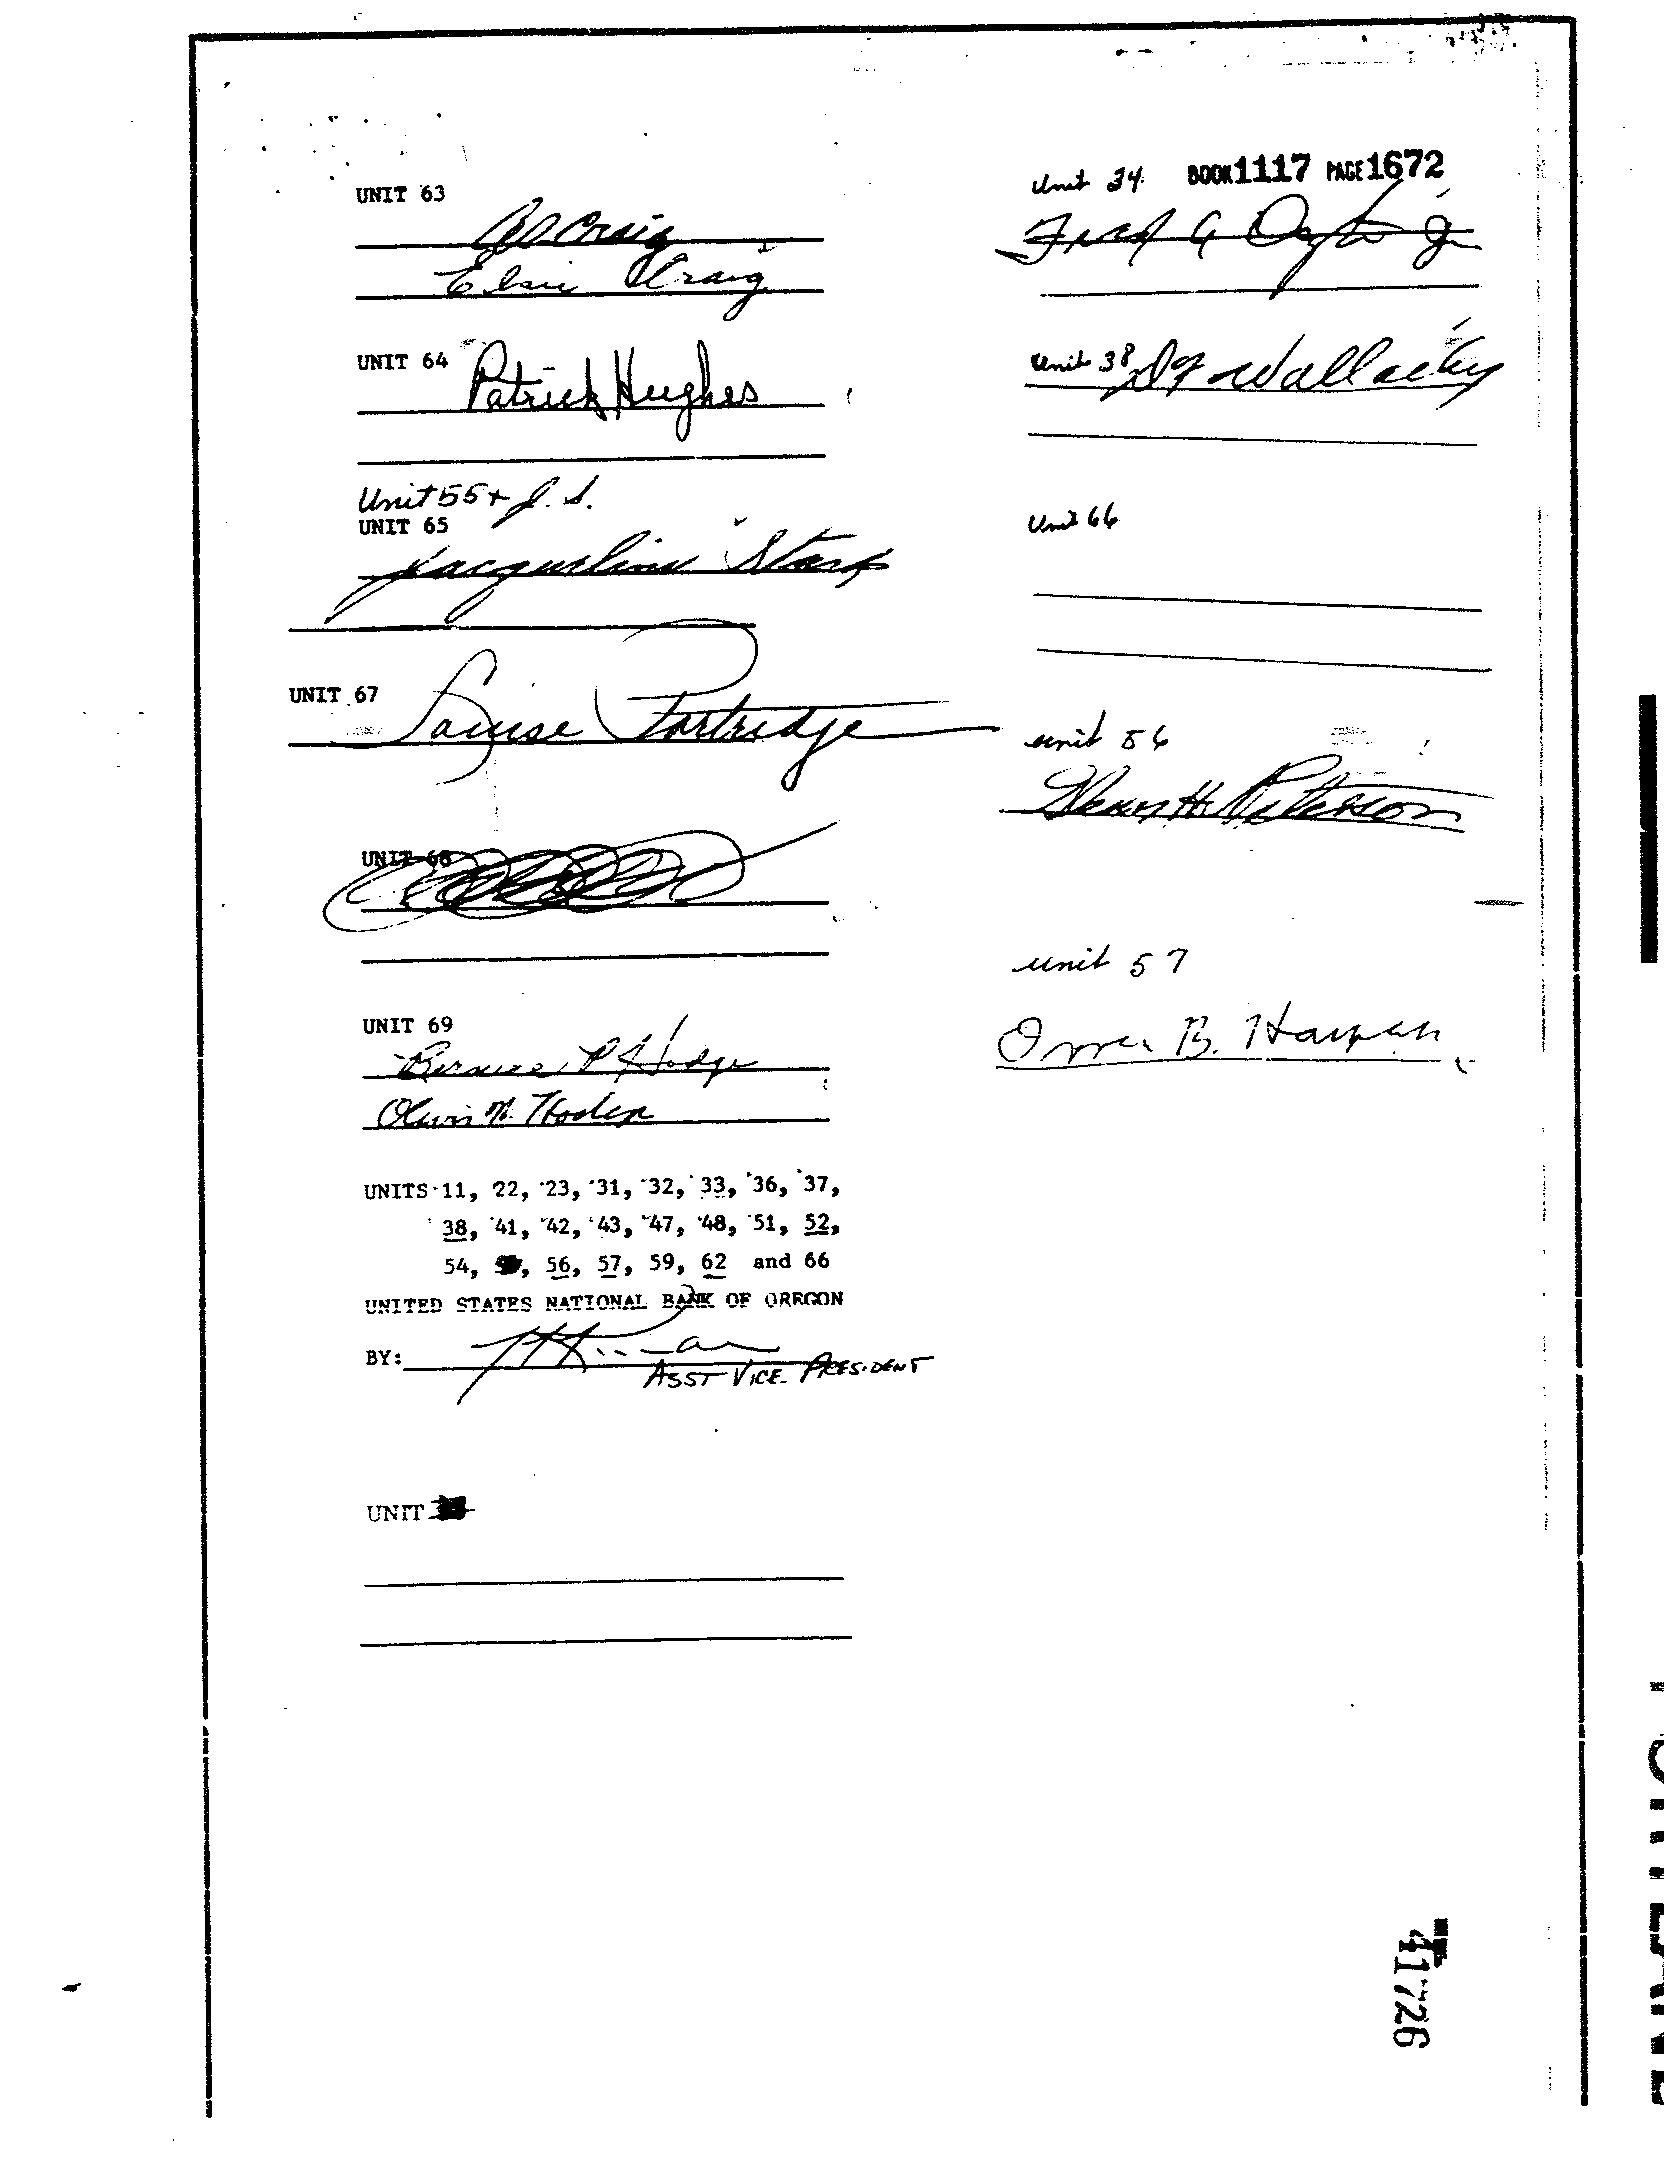 BOOK 1117 PAGE 1672
UNIT 63
Craig
Craig
UNIT 64
Patrick Hughes
Unit 55 + J. S.
UNIT 65
Jacqueline Stark
UNIT 67
Louise Partridge
UNIT 68
UNIT 69
Bernice P Hodge
UNITS 11, 22, 23, 31, 32, 33, 36, 37,
38, 41, 42, 43, 47, 48, 51, 52,
54, 56, 57, 59, 62 and 66
UNITED STATES NATIONAL BANK OF OREGON
BY:
ASST VICE PRESIDENT
UNIT
Unit 34
Fred G
Unit 38
Unit 66
unit 56
H. Peterson
unit 57
B.
41726